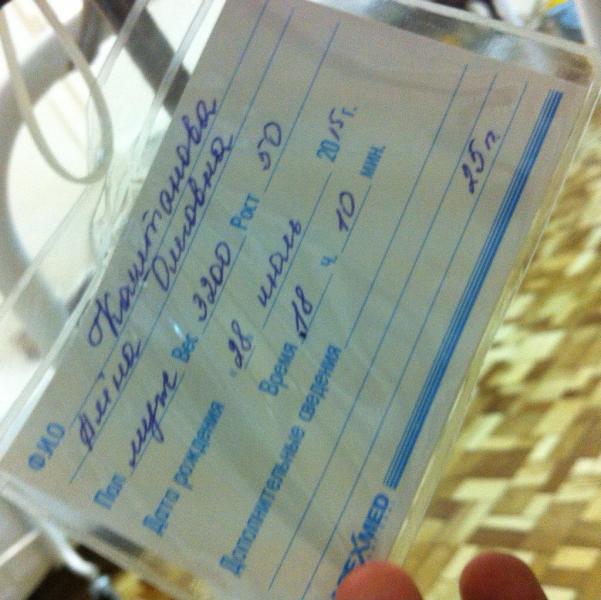 Ф.И.О Каштанова
Алина Олеговна
Пол муж Вес 3200 Рост 50
Дата рождения "28 июль 2015 г.
Время 18 ч. 10 мин.
Дополнительные сведения
25 п
EXMED